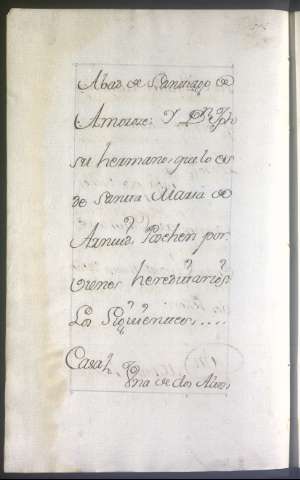 Abad de Santiago de
Amoroce; Y Dn. Jph
su hermano, que lo es
de Santa Maria de
Arnuid, Pochen por
vienes hereditarios
Los Siguientes....
Casa, Vna de dos Altos